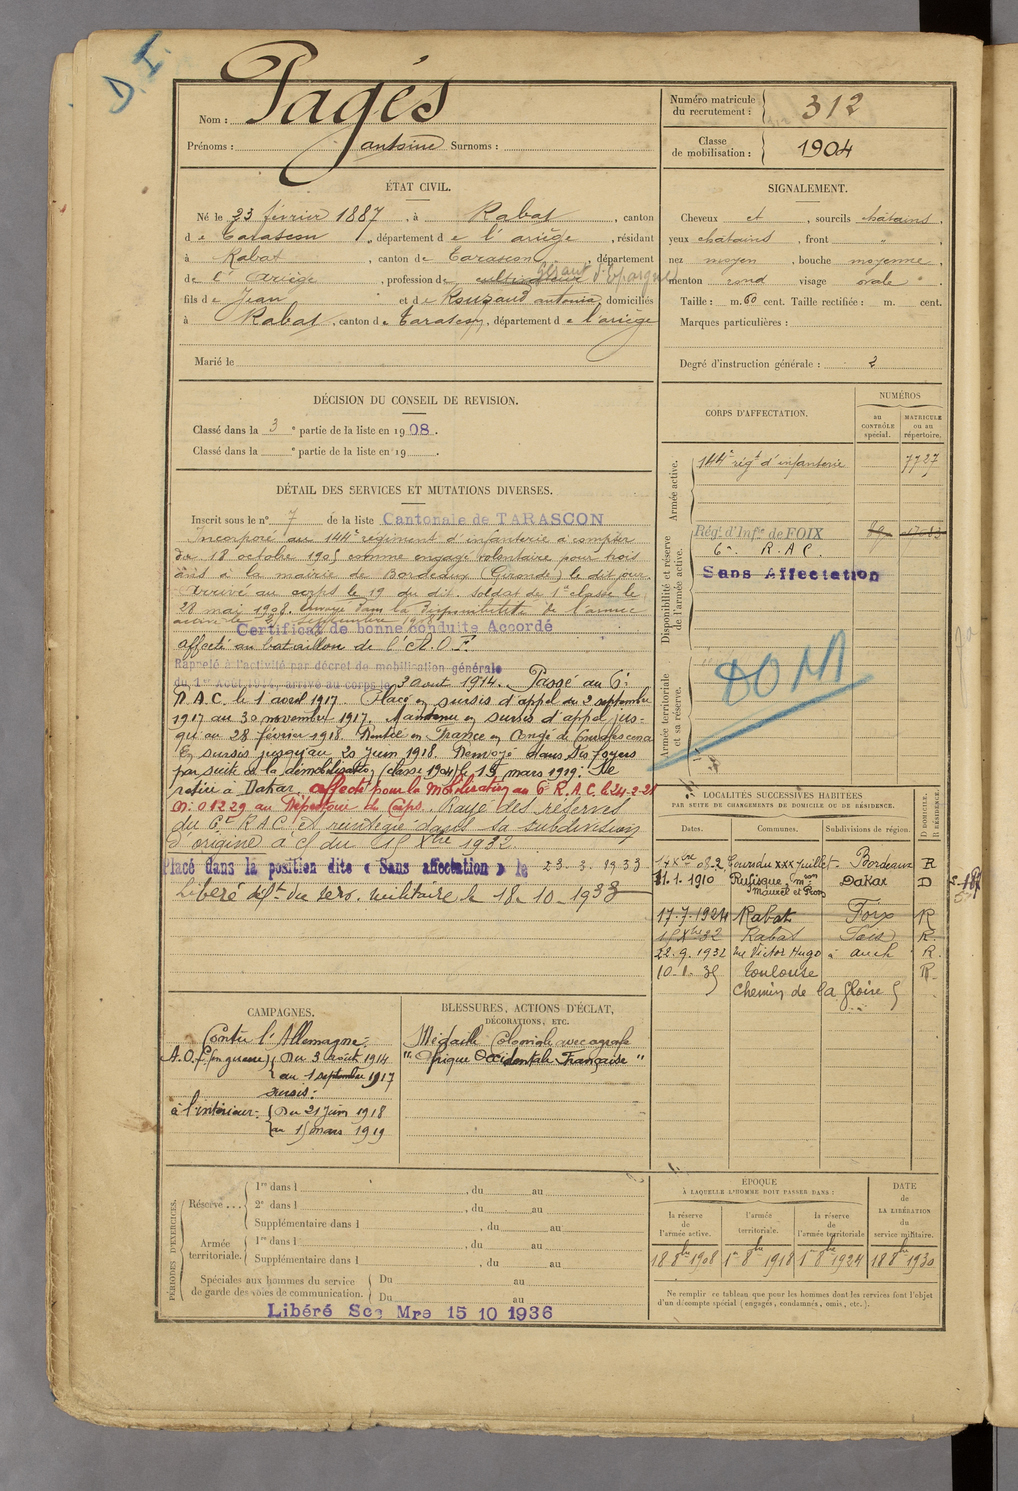 D. I.
Nom : Pagès
Prénoms : antoine Surnoms :
Numéro matricule du recrutement : 312
Classe de mobilisation : 1904
ÉTAT CIVIL.
Né le 23 février 1887, à Rabat, canton
de Tarascon, département de l'ariège, résidant
à Rabat, canton de Tarascon, département
de l'ariège, profession de cultivateur gérant d'Epargne
fils de Jean et de Rouzaud antonia, domiciliés
à Rabat, canton de Tarascon, département de l'ariège
Marié le
SIGNALEMENT.
Cheveux et , sourcils châtains,
yeux châtains, front "
nez moyen, bouche moyenne,
menton rond visage ovale
Taille : m. 60 cent. Taille rectifiée : m. cent.
Marques particulières :
Degré d'instruction générale : 2
DÉCISION DU CONSEIL DE REVISION.
Classé dans la 3e partie de la liste en 1908.
Classé dans la e partie de la liste en 19 .
DÉTAIL DES SERVICES ET MUTATIONS DIVERSES.
Inscrit sous le n° 7 de la liste Cantonale de TARASCON
Incorporé au 144e régiment d'infanterie à compter
du 18 octobre 1905 comme engagé volontaire pour trois
ans à la mairie de Bordeaux (Gironde) le dit jour.
Arrivé au corps le 19 du dit. Soldat de 1e classe le
28 mai 1908. Envoyé dans la disponibilité de l'armée
active le septembre 1908.
Certificat de bonne conduite Accordé
affecté au bataillon de l'A.O.F.
Rappelé à l'activité par décret de mobilisation générale
du 1er Août 1914, arrivé au corps le 3 aout 1914. Passé au 6e
R.A.C. le 1 avril 1917. Placé en sursis d'appel du 2 septembre
1917 au 30 novembre 1917. Maintenu en sursis d'appel jus-
qu'au 28 février 1918. Rentré en France en Congé de
En sursis jusqu'au 20 Juin 1918. Renvoyé dans ses foyers
par suite de la démobilisation (classe 1904) le 15 mars 1919. Se
retire à Dakar. affecté pour la Mobilisation au 6e R.A.C. le 24-2-21
N: 01229 au Répertoire du Corps. Rayé des réserves
du 6e RAC et réintégré dans la subdivision
d'origine à c/ du 15 Xbre 1932
Placé dans la position dite « Sans affectation » le 23.3.1933
Libéré déft. du serv. militaire le 18-10-1933
CORPS D'AFFECTATION.
NUMÉROS
au CONTRÔLE spécial.
MATRICULE ou au répertoire.
Armée active.
144e régt d'infanterie 7727
Disponibilité et réserve de l'armée active.
Régt. d'Inf.ie de FOIX
6e R.A.C.
Sans Affectation
Armée territoriale et sa réserve.
DOM
LOCALITÉS SUCCESSIVES HABITÉES
PAR SUITE DE CHANGEMENTS DE DOMICILE OU DE RÉSIDENCE.
Dates. Communes. Subdivisions de région. D DOMICILE. R RÉSIDENCE.
Cours du XXX Juillet Bordeaux R
11.1.1910 Rufisque, mson Maurel et Prom Dakar D
17.7.1924 Rabat Foix R
15 Xbre 32 Rabat Foix R.
22.9.1932 rue Victor Hugo à auch R.
10.1.35 Toulouse R.
Chemin de la gloire 5
CAMPAGNES.
Contre l'Allemagne :
A.O.F. (en guerre) { Du 3 août 1914
au 1 septembre 1917
sursis :
à l'intérieur : { Du 21 juin 1918
au 15 mars 1919
BLESSURES, ACTIONS D'ÉCLAT,
DÉCORATIONS, ETC.
Médaille Coloniale avec agrafe
"frique Occidentale Française"
PÉRIODES D'EXERCICES.
Réserve... 1re dans l , du au
2e dans l , du au
Supplémentaire dans l , du au
Armée territoriale. 1re dans l , du au
Supplémentaire dans l , du au
Spéciales aux hommes du service de garde des voies de communication. Du au
Du au
Libéré Sce Mre 15 10 1936
ÉPOQUE
À LAQUELLE L'HOMME DOIT PASSER DANS :
la réserve de l'armée active.
l'armée territoriale.
la réserve de l'armée territoriale
DATE de LA LIBÉRATION du service militaire.
18 8bre 1908 1er 8bre 1918 1er 8bre 1924 18 8bre 1930
Ne remplir ce tableau que pour les hommes dont les services font l'objet
d'un décompte spécial (engagés, condamnés, omis, etc.).